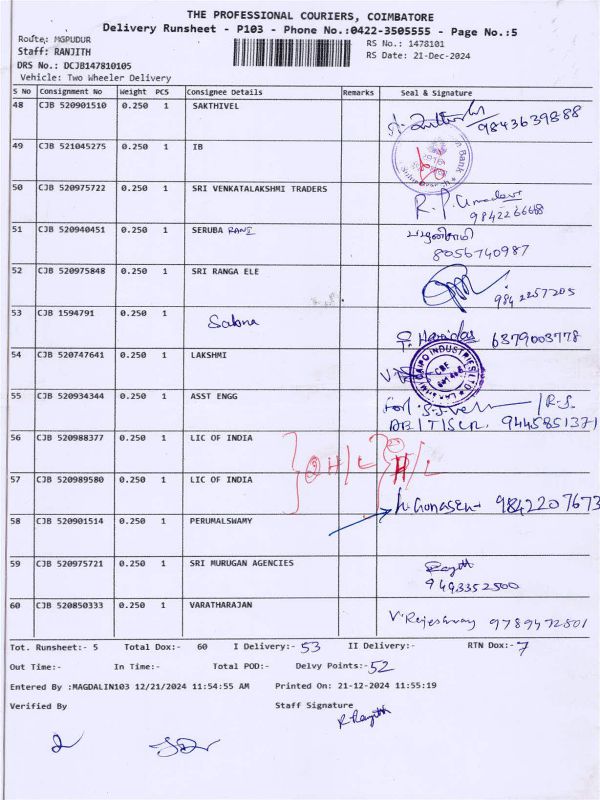 THE PROFESSIONAL COURIERS, COIMBATORE
Delivery Runsheet - P103 - Phone No.:0422-3505555 - Page No.:5
Route,: MGPUDUR
RS No.: 1478101
Staff: RANJITH
RS Date: 21-Dec-2024
DRS No.: DCJB147810105
Vehicle: Two Wheeler Delivery
S No Consignment No Weight PCS Consignee Details Remarks Seal & Signature
48 CJB 520901510 0.250 1 SAKTHIVEL
9843639888
49 CJB 521045275 0.250 1 IB
50 CJB 520975722 0.250 1 SRI VENKATALAKSHMI TRADERS R.P. Umadevi
51 CJB 520940451 0.250 1 SERUBA RANI பழனிசாமி
8056740987
52 CJB 520975848 0.250 1 SRI RANGA ELE
9842257205
53 CJB 1594791 0.250 1 Sabna
Haridas 6379003778
54 CJB 520747641 0.250 1 LAKSHMI
55 CJB 520934344 0.250 1 ASST ENGG
9445851371
56 CJB 520988377 0.250 1 LIC OF INDIA H/L H/L
57 CJB 520989580 0.250 1 LIC OF INDIA
9842207673
58 CJB 520901514 0.250 1 PERUMALSWAMY
59 CJB 520975721 0.250 1 SRI MURUGAN AGENCIES
9493352500
60 CJB 520850333 0.250 1 VARATHARAJAN V. Rajeshwary 9789472801
Tot. Runsheet:- 5 Total Dox:- 60 I Delivery:- 53 II Delivery:- RTN Dox:- 7
Out Time:- In Time:- Total POD:- Delvy Points:- 52
Entered By :MAGDALIN103 12/21/2024 11:54:55 AM Printed On: 21-12-2024 11:55:19
Verified By Staff Signature
R Ranjith